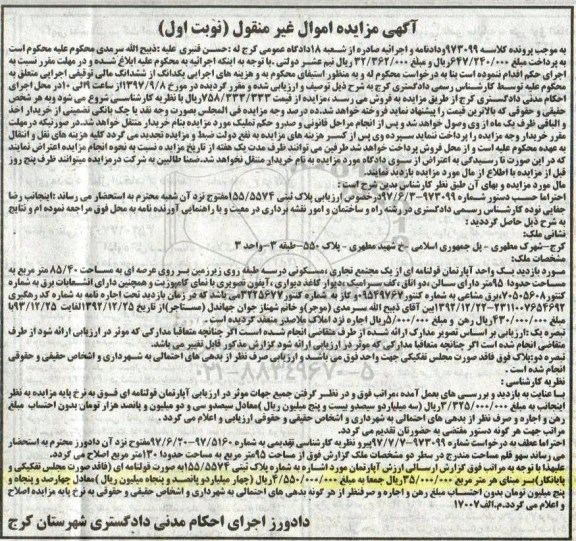 آگهی مزایده اموال غیر منقول (نوبت اول)
به موجب پرونده کلاسه ۹۷۳۰۹۹ودادنامه و اجرائیه صادره از شعبه ۱۸دادگاه عمومی کرج له :حسن قنبری علیه :ذبیح الله سرمدی محکوم علیه محکوم است
به پرداخت مبلغ ۶۴۷/۲۴۰/۰۰۰ریال و مبلغ ۳۲/۳۶۲/۰۰۰ ریال نیم عشر دولتی .با توجه به اینکه اجرائیه به محکوم علیه ابلاغ شده و در مهلت مقرر نسبت به
اجرای حکم اقدام ننموده است بنا به درخواست محکوم له و به منظور استیفای محکوم به و هزینه های اجرایی یکدانگ از ششدانگ مالی توقیفی اجرایی متعلق به
محکوم علیه توسط کارشناس رسمی دادگستری کرج به شرح ذیل توصیف و ارزیابی شده و مقرر گردیده در مورخ ۱۳۹۷/۹/۸از ساعت ۹الی ۱۰در محل اجرای
احکام مدنی دادگستری کرج از طریق مزایده به فروش می رسد .مزایده از قیمت ۷۵۸/۳۳۳/۳۳۳ریال با نظریه کارشناسی شروع می شود وبه هر شخص
حقیقی و حقوقی که بالاترین قیمت را پیشنهاد نماید فروخته خواهد شد.ده درصد وجه مزایده فی المجلس بصورت وجه نقد یا چک بانکی تضمینی از خریدار اخذ
و الباقی ظرف یک ماه از وی وصول خواهد شد و پس از انجام مراحل قانونی و صدور حکم تملیک مورد مزایده بنام خریدار منتقل خواهد شد.در صورتیکه در مهلت
مقرر خریدار وجه مزایده را پرداخت ننماید سپرده وی پس از کسر هزینه های مزایده به نفع دولت ضبط و مزایده تجدید می گردد کلیه هزینه های نقل و انتقال
به عهده محکوم علیه است و از محل فروش پرداخت خواهد شد طرفین می توانند ظرف مدت یک هفته از تاریخ مزایده نسبت به نحوه انجام مزایده اعتراض نمایند
که در این صورت تا رسیدگی به اعتراض از سوی دادگاه مورد مزایده به نام خریدار منتقل نخواهد شد.ضمنا طالبین به شرکت درمزایده میتوانند ظرف پنج روز
قبل از مزایده با اطلاع از مال مورد مزایده .
مال مورد مزایده و بهای آن طبق نظر کارشناس بدین شرح است :
احتراما حسب دستور شماره ۹۷۳۰۹۹-۹۷/۶/۳درخصوص ارزیابی پلاک ثبتی ۱۵۵/۵۵۷۴مفتوح نزد آن شعبه محترم به استحضار می رساند :اینجانب رضا
جفایی نوده کارشناس رسمی دادگستری در رشته راه و ساختمان و امور نقشه برداری در معیت و با راهنمایی آورنده نامه به محل فوق مراجعه نموده ام و نتایج
به شرح ذیل حاصل گردیده :
نشانی ملک:
کرج-شهرک مطهری - پل جمهوری اسلامی -خ شهید مطهری - پلاک ۵۵۰-طبقه ۳-واحد ۳
مشخصات ملک:
مورد بازدید یک واحد آپارتمان قولنامه ای از یک مجتمع تجاری ،مسکونی درسه طبقه روی زیرزمین بر روی عرصه ای به مساحت ۸۵/۴۰ متر مربع به
مساحت حدودا ۹۵متر دارای سالن ،دو اتاق ،کف سرامیک ،دیوار کاغذ دیواری ،آیفون تصویری با نمای کامپوزیت و همچنین دارای انشعابات برق به شماره
کنتور۷۰۵۰۵۶۰۸ ،برق مشاعی به شماره کنتور۰۹۵۴۹۷۶۷ و گاز به شماره کنتور ۳۲۲۵۶۷۷می باشد که در زمان بازدید تحت اجاره نامه به شماره کد رهگیری
۲۳۱۱۰۰۷۶۵۴۶۹۲-۱۳۹۲/۱۲/۲۲بین آقای ذبیح الله سرمدی (موجر)و خانم شهناز جوان جهاندل (مستاجر)از تاریخ ۱۳۹۲/۱۲/۲۵ لغایت ۱۳۹۳/۱۲/۲۵ با
مبلغ ۴۳۰/۰۰۰/۰۰۰ ریال رهن و مبلغ ۵/۰۰۰/۰۰۰ریال اجاره نزد املاک ملاصدر منعقد گردیده است.
تبصره یک :ارزیابی بر اساس تصویر مدارک ارائه شده از طرف متقاضی انجام شده است اگر چنانچه متعاقبا مدارکی که موثر در ارزیابی ارائه شود از طرف
متقاضی انجام شده است اگر چنانچه متعاقبا مدارکی که موثر در ارزیابی ارائه شود گزارش مذکور قابل تغییر می باشد.
تبصره دو:پلاک فوق فاقد صورت مجلس تفکیکی جهت واحد فوق می باشند و ارزیابی صرف نظر از بدهی های احتمالی به شهرداری و اشخاص حقیقی و حقوقی
انجام شده است .
نظریه کارشناسی :
با عنایت به بازدید و بررسی های بعمل آمده ،مراتب فوق و در نظر گرفتن جمیع جهات موثر در ارزیابی آپارتمان قولنامه ای فوق به نرخ پایه مزایده به نظر
اینجانب به مبلغ ۳/۳۲۵/۰۰۰/۰۰۰ریال (سه میلیارد سیصدو بیست و پنج میلیون ریال )معادل سیصدو سی و دو میلیون و پانصد هزار تومان بدون احتساب مبلغ
رهن و اجاره و صرف نظر از بدهی های احتمالی به شهرداری و اشخاص حقیقی و حقوقی ارزیابی و اعلام می گردد .
مراتب جهت هر گونه دستور مقتضی به حضورتان تقدیم می گردد.
احتراما عطف به درخواست شماره ۹۷۳۰۹۹-۹۷/۷/۷پیرو نظریه کارشناسی تقدیمی به شماره ۵۱۶۰-۹۷/۶/۲۰مفتوح نزد آن دادورز محترم به استحضار
می رساند سهو قلم مساحت مندرج در سطر دو مشخصات ملک گزارش فوق از مساحت ۹۵متر مربع به مساحت حدودا ۱۳۰متر مربع اصلاح می گردد.
علیهذا با توجه به مراتب فوق گزارش ارسالی ارزش آپارتمان مورد اشاره به شماره پلاک ثبتی ۱۵۵/۵۵۷۴به صورت قولنامه ای (فاقد صورت مجلس تفکیکی و
پایانکار)بر مبنای هر متر مربع ۳۵/۰۰۰/۰۰۰ریال جمعا به مبلغ ۴/۵۵۰/۰۰۰/۰۰۰ریال (چهار میلیاردو پانصد و پنجاه میلیون ریال )معادل چهارصد و پنجاه و
پنج میلیون تومان بدون احتساب مبلغ رهن و اجاره و صرفنظر از هر گونه بدهی های احتمالی به شهرداری و اشخاص حقیقی و حقوقی به نرخ پایه مزایده اصلاح
و اعلام می گردد.م.الف۱۷۰۰۷
دادورز اجرای احکام مدنی دادگستری شهرستان کرج
۰۲۱-۸۸۳۴۹۶۷۰-۵